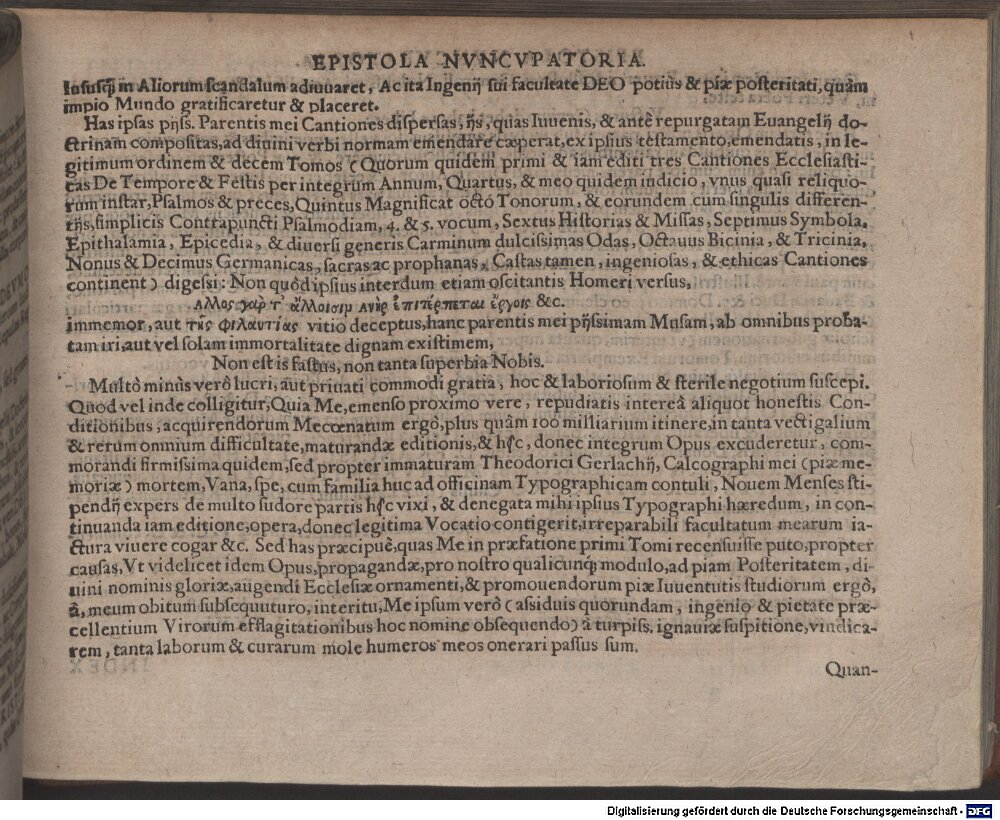 EPISTOLA NVNCVPATORIA.
Insusq́; in Aliorum scandalum adiuuaret, Ac ita Ingenij sui facultate DEO potiùs & piæ posteritati, quàm
impio Mundo gratificaretur & placeret.
Has ipsas pijss. Parentis mei Cantiones dispersas, ijs, quas Iuuenis, & antè repurgatam Euangelij do-
ctrinam compositas, ad diuini verbi normam emendare cæperat, ex ipsius testamento, emendatis, in le-
gitimum ordinem & decem Tomos (Quorum quidem primi & iam editi tres Cantiones Ecclesiasti-
cas De Tempore & Festis per integrum Annum, Quartus, & meo quidem indicio, vnus quasi reliquo-
rum instar, Psalmos & preces, Quintus Magnificat octo Tonorum, & eorundem cum singulis differen-
tijs, simplicis Contrapuncti Psalmodiam, 4. & 5. vocum, Sextus Historias & Missas, Septimus Symbola,
Epithalamia, Epicedia, & diuersi generis Carminum dulcissimas Odas, Octauus Bicinia, & Tricinia,
Nonus & Decimus Germanicas, sacras ac prophanas, Castas tamen, ingeniosas, & ethicas Cantiones
continent) digessi: Non quòd ipsius interdum etiam oscitantis Homeri versus,
Αλλος γαρ τ' ἄλλοισιμ ανὴρ ἐπιτέρπεται ἔργοις &c.
immemor, aut τῆς φιλαυτίας vitio deceptus, hanc parentis mei pijssimam Musam, ab omnibus proba-
tam iri, aut vel solam immortalitate dignam existimem,
Non est is fastus, non tanta superbia Nobis.
Multò minùs verò lucri, aut priuati commodi gratia, hoc & laboriosum & sterile negotium suscepi.
Quod vel inde colligitur, Quia Me, emenso proximo vere, repudiatis intereà aliquot honestis Con-
ditionibus, acquirendorum Mecœnatum ergò, plus quàm 100 milliarium itinere, in tanta vectigalium
& rerum omnium difficultate, maturandæ editionis, & hîc, donec integrum Opus excuderetur, com-
morandi firmissima quidem, sed propter immaturam Theodorici Gerlachij, Calcographi mei (piæ me-
moriæ) mortem, Vana, spe, cum familia huc ad officinam Typographicam contuli, Nouem Menses sti-
pendij expers de multo sudore partis hîc vixi, & denegata mihi ipsius Typographi hæredum, in con-
tinuanda iam editione, opera, donec legitima Vocatio contigerit, irreparabili facultatum mearum ia-
ctura viuere cogar &c. Sed has præcipuè, quas Me in præfatione primi Tomi recensuisse puto, propter
causas, Vt videlicet idem Opus, propagandæ, pro nostro qualicunq́; modulo, ad piam Posteritatem, di-
uini nominis gloriæ, augendi Ecclesiæ ornamenti, & promouendorum piæ Iuuentutis studiorum ergò,
à, meum obitum subsequuturo, interitu, Me ipsum verò (assiduis quorundam, ingenio & pietate præ-
cellentium Virorum efflagitationibus hoc nomine obsequendo) à turpiss. ignauiæ suspitione, vindica-
rem, tanta laborum & curarum mole humeros meos onerari passus sum.
Quan-
Digitalisierung gefördert durch die Deutsche Forschungsgemeinschaft - DFG